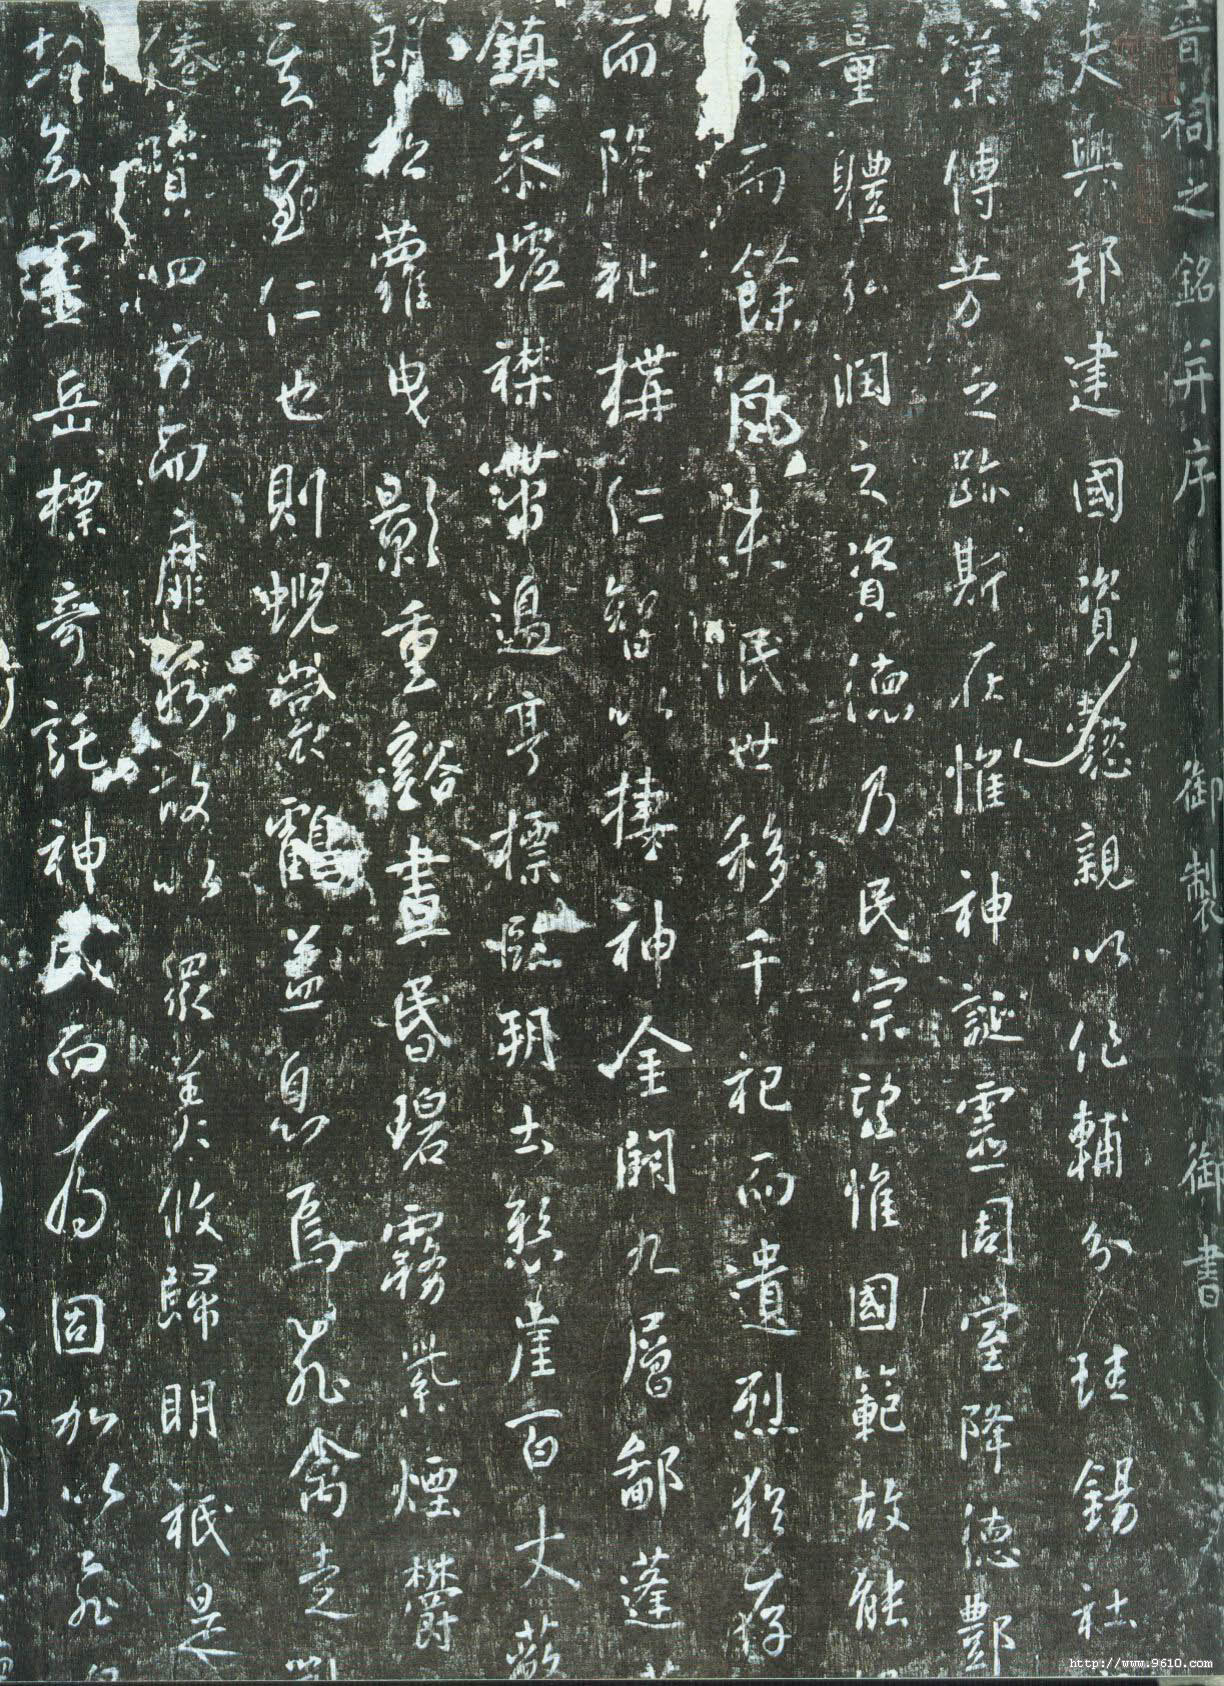 晉祠之銘并序 御製 御書
夫興邦建國資懿親以作輔分珪錫社
葉傳芳之跡斯在惟神誕靈周室降德酆
量體弘潤之資德乃民宗望惟國範故能
分而餘風未泯世移千祀而遺烈猶存
而降祉構仁智以棲神金闕九層鄙蓬
鎮參墟襟帶邊亭標臨朔土懸崖百丈蔽
朗松蘿曳影重谿晝昏碧霧紫煙鬱
其至仁也則蜺裳鶴蓋息焉飛禽走
四方而靡故以眾美攸歸明祇是
故知靈岳標奇託神威而為固加以飛
http://www.9610.com